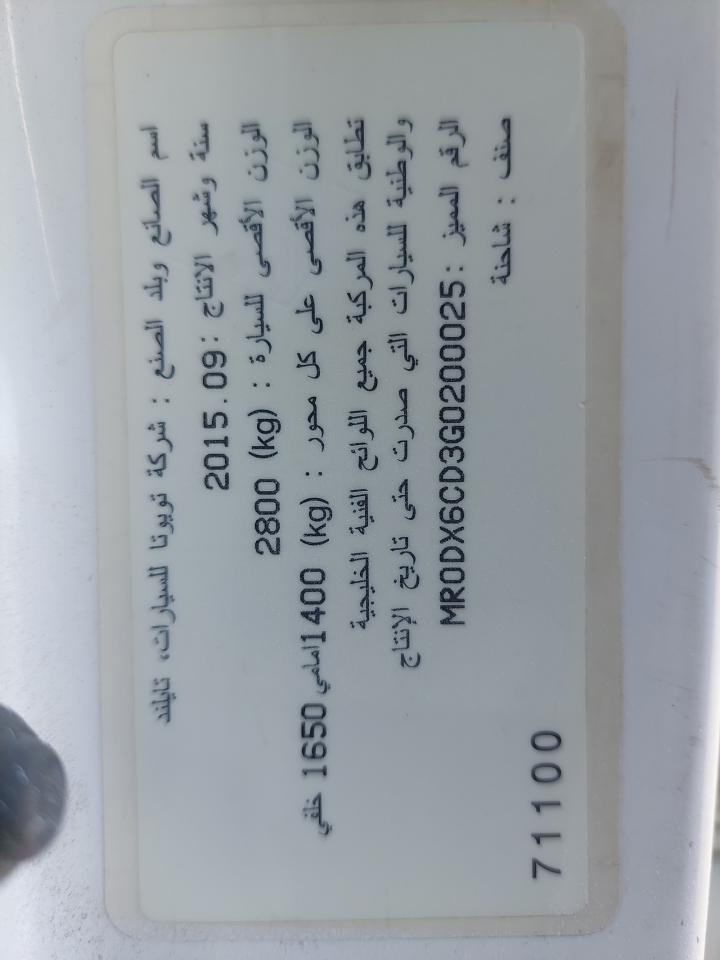 اسم الصانع وبلد الصنع : شركة تويوتا للسيارات، تايلند
سنة وشهر الانتاج :2015.09
الوزن الأقصى للسيارة : (kg) 2800
الوزن الأقصى على كل محور : (kg) 1400امامي 1650 خلفي
تطابق هذه المركبة جميع اللوائح الفنية الخليجية
والوطنية للسيارات التي صدرت حتى تاريخ الإنتاج
الرقم المميز :MR0DX6CD3G0200025
صنف : شاحنة
71100